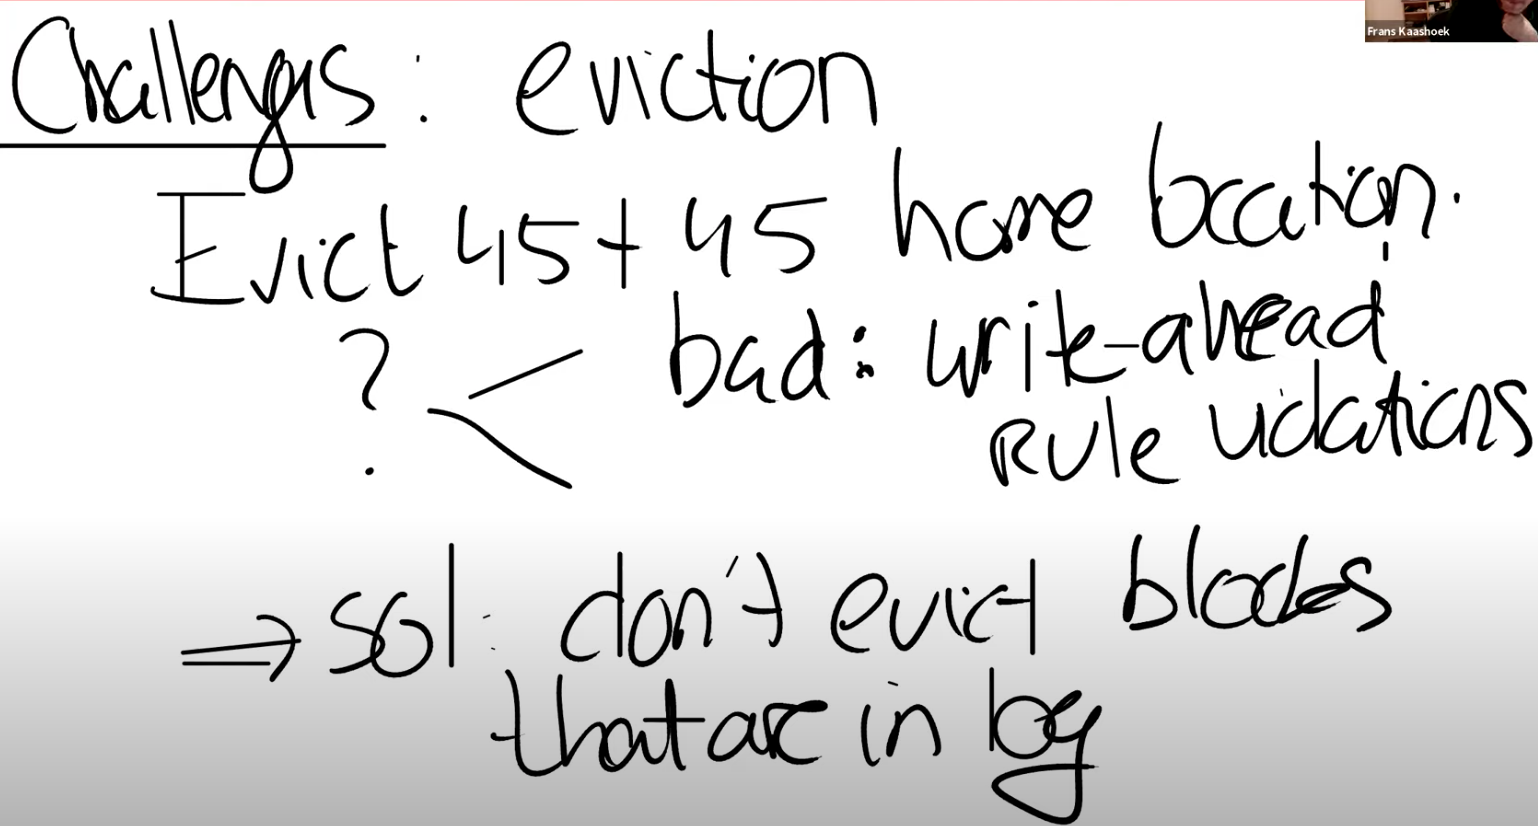 Frans Kaashoek
Challenges : eviction
Evict 45 + 45 home location.
? bad : write-ahead
Rule violations
⇒ sol : don't evict blocks
that are in log